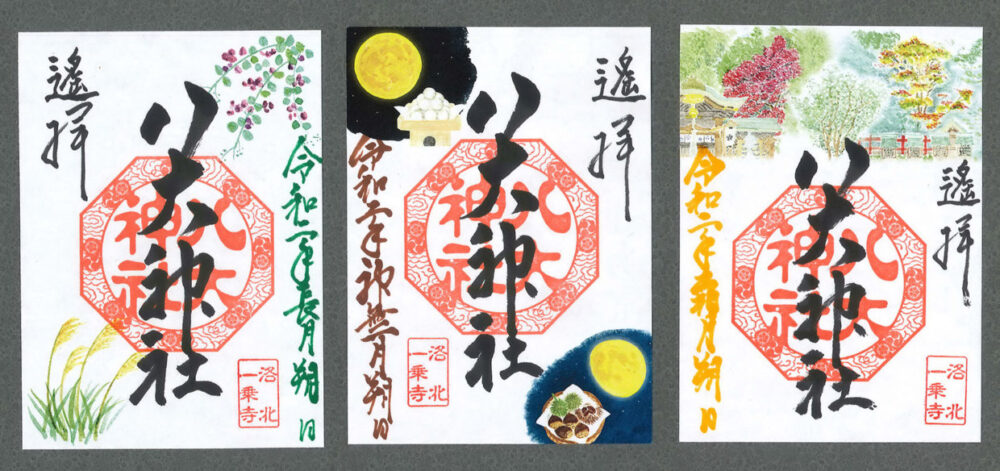 遙拝
八大神社
八大
神社
令和二年長月朔日
洛北
一乗寺
遙拝
八大神社
八大
神社
令和二年神無月朔日
洛北
一乗寺
遙拝
八大神社
八大
神社
令和二年霜月朔日
洛北
一乗寺